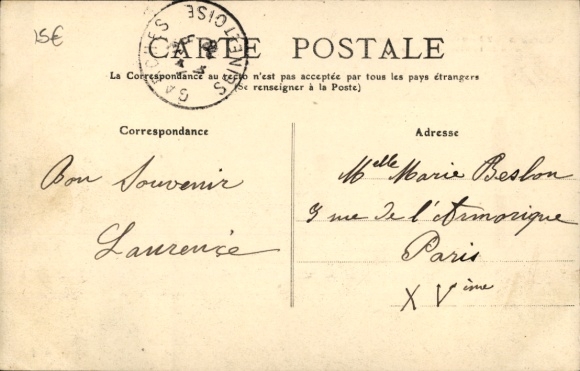 15€
GARCHES
SEINE ET OISE
CARTE POSTALE
La Correspondance au recto n'est pas acceptée par tous les pays étrangers
(Se renseigner à la Poste)
Correspondance
Bon Souvenir
Laurence
Adresse
Melle Marie Beslon
9 rue de l'Armorique
Paris
XVème